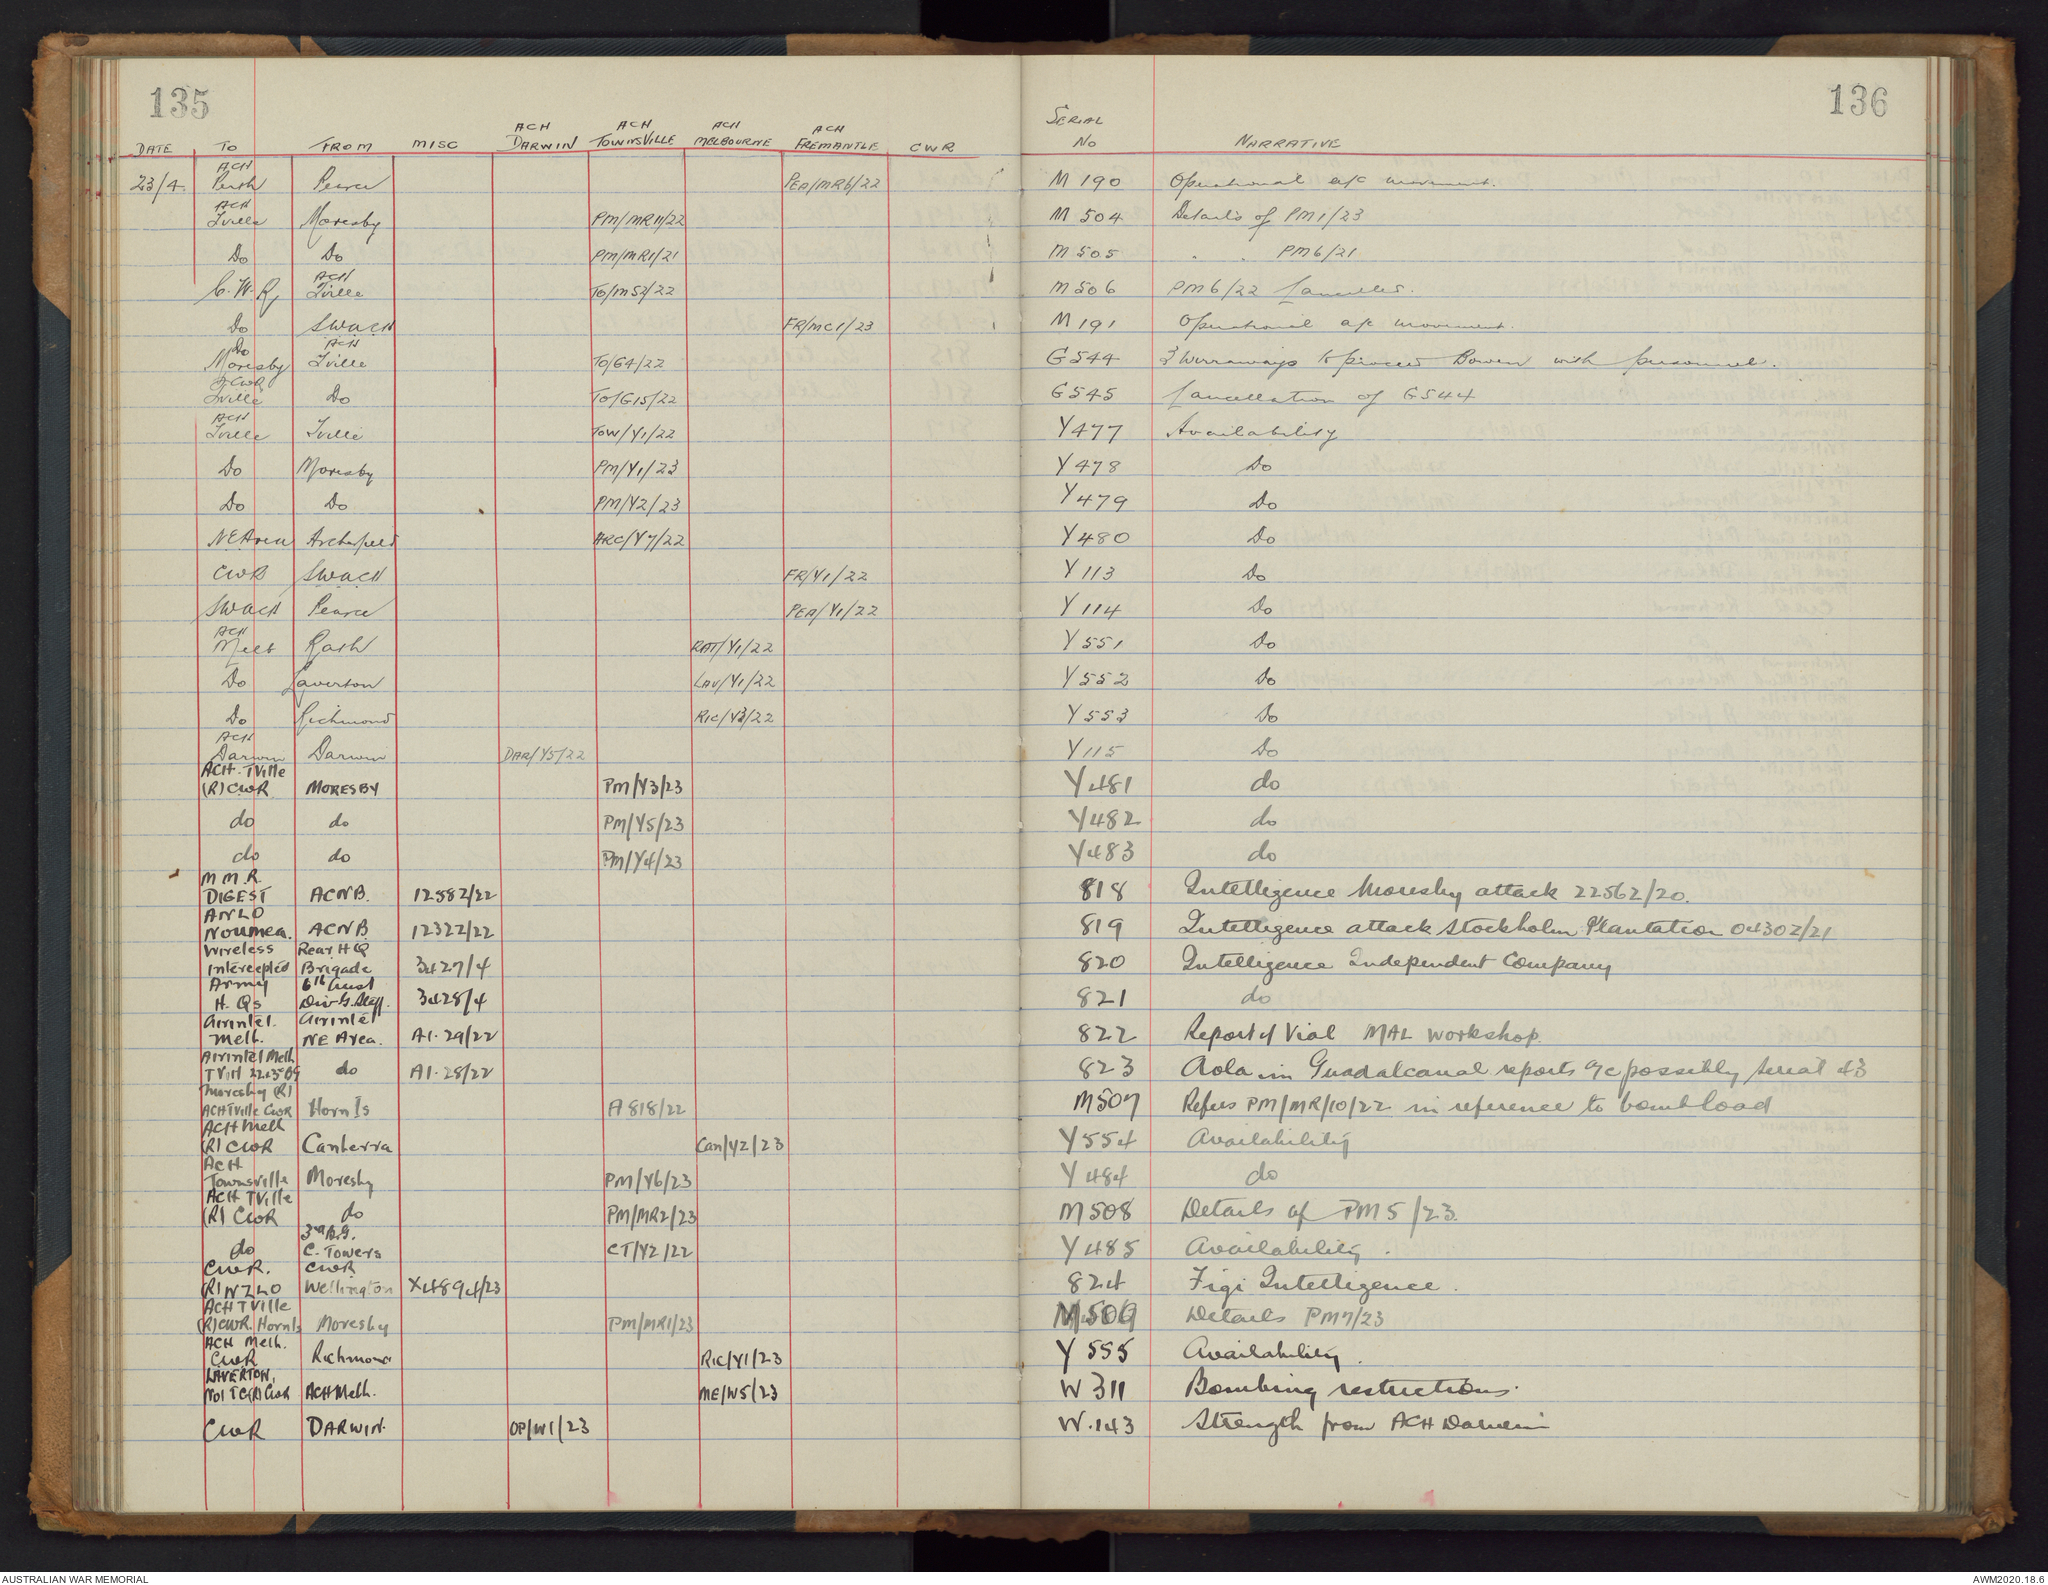 135
136
DATE TO FROM MISC ACH DARWIN ACH TOWNSVILLE ACH MELBOURNE ACH FREMANTLE CWR SERIAL No NARRATIVE
23/4 ACH Perth Pearce PEA/MR6/22 M 190 Operational a/c movement.
ACH Tville Moresby PM/MR11/22 M 504 Details of PM1/23
Do Do PM/MR1/21 M 505 " " PM6/21
C.W.R. ACH Tville TO/M52/22 M 506 PM6/22 Cancelled.
Do SWACH FR/MC1/23 M 191 Operational a/c movement.
Do Moresby ACH Tville TO/G4/22 G 544 Wirraways to proceed Bowen with personnel.
CWR Tville Do TO/G15/22 G 545 Cancellation of G544
ACH Tville Tville TOW/Y1/22 Y 477 Availability
Do Moresby PM/Y1/23 Y 478 Do
Do Do PM/Y2/23 Y 479 Do
NEArea Archerfield ARC/Y7/22 Y 480 Do
CWR SWACH FR/Y1/22 Y 113 Do
SWACH Pearce PEA/Y1/22 Y 114 Do
ACH Melb Rath RAT/Y1/22 Y 551 Do
Do Laverton LAV/Y1/22 Y 552 Do
Do Richmond RIC/Y3/22 Y 553 Do
ACH Darwin Darwin DAR/Y5/22 Y 115 Do
ACH. TVille
(R) CWR MORESBY PM/Y3/23 Y 481 do
do do PM/Y5/23 Y 482 do
do do PM/Y4/23 Y 483 do
M.M.R.
DIGEST ACNB. 1258Z/22 818 Intelligence Moresby attack 2256Z/20.
ANLO
NOUMEA. ACNB 1232Z/22 819 Intelligence attack Stockholm Plantation 0430Z/21
Wireless Rear HQ
Intercepted Brigade 3427/4 820 Intelligence Independent Company
Army 6th Aust
H. Qs Div G. Staff. 3428/4 821 do
Airintel. Airintel
Melb. NE Area. A1.29/22 822 Report of Vial MAL Workshop.
Airintel Melb
do A1.28/22 823 Aola in Guadalcanal reports a/c possibly Serial 43
Moresby (R)
ACHTVille CWR Horn Is A818/22 M507 Refers PM/MR/10/22 in reference to bomb load
ACH Melb
(R) CWR Canberra Can/Y2/23 Y 554 Availability
ACH
Townsville Moresby PM/Y6/23 Y 484 do
ACH TVille
(R) CWR do PM/MR2/23 M508 Details of PM5/23.
3rd B.G.
do C. Towers CT/Y2/22 Y 485 Availability.
CWR. CWR
(R) NZLO Wellington X4894/23 824 Figi Intelligence.
ACH TVille
(R) CWR. Horn Is Moresby PM/MR1/23 M509 Details PM7/23
ACH Melb.
CWR Richmond RIC/Y1/23 Y 555 Availability.
LAVERTON,
No1 TG(R) CWR ACH Melb. ME/W5/23 W 311 Bombing restrictions.
CWR DARWIN. OP/W1/23 W.143 Strength from ACH Darwin
AUSTRALIAN WAR MEMORIAL
AWM2020.18.6